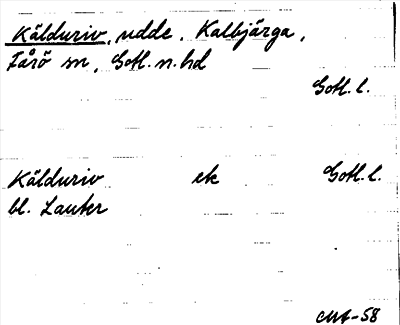 Källduriv, udde, Kalbjärga,
Fårö sn, Gotl. n. hd
Gotl. l.
Källduriv ek Gotl. l.
bl. Lauter
-58